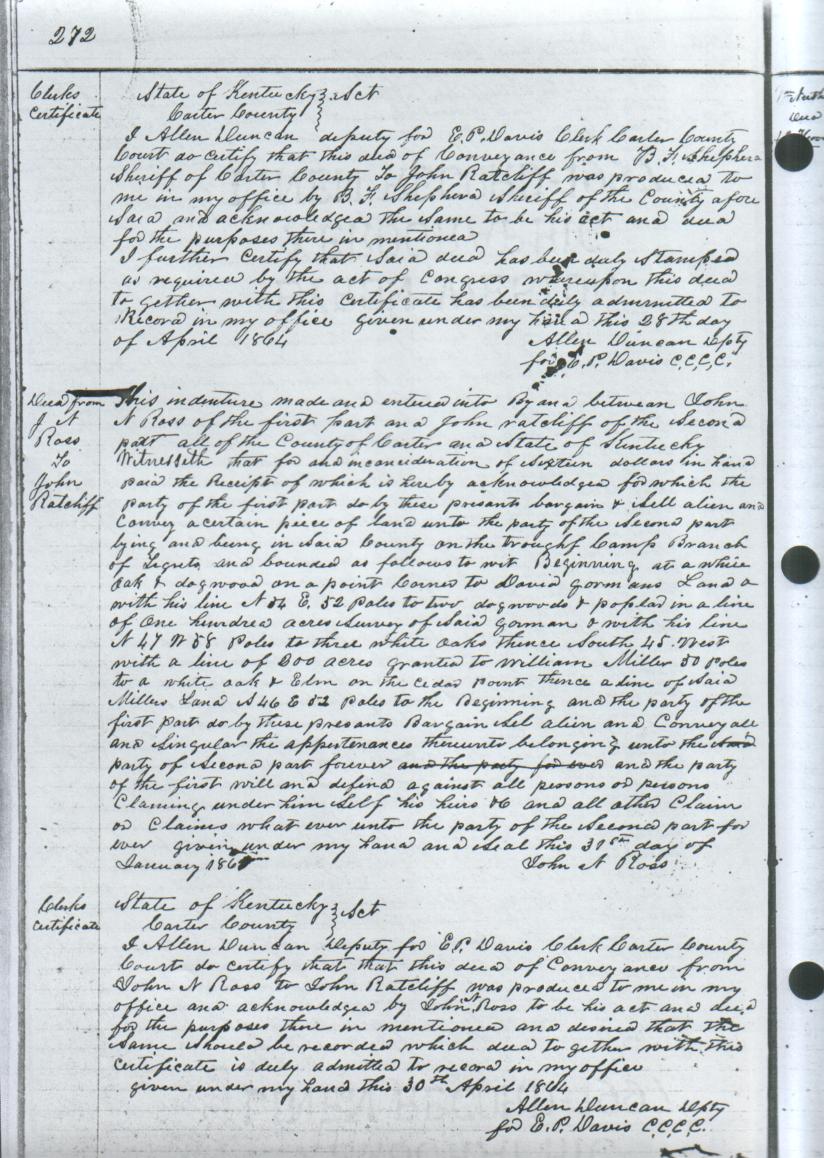 272
Clerks
Certificate
State of Kentucky } Sct
Carter County }
I Allen Duncan deputy for E.P. Davis Clerk Carter County
Court do certify that this deed of Conveyance from B. F. Shepherd
Sheriff of Carter County To John Ratcliff was produced to
me in my office by B. F. Shepherd Sheriff of the County afore
Said and acknowledged the same to be his act and deed
for the purposes there in mentioned
I further Certify that Said deed has been duly Stamped
as required by the act of Congress whereupon this deed
to gether with this Certificate has been duly admitted to
Record in my office given under my hand this 28th day
of April 1864
Allen Duncan Dpty
for E. P. Davis C.C.C.C.
Deed from
J N
Ross
To
John
Ratcliff
This indenture made and entered into By and between John
N Ross of the first part and John ratcliff of the Second
part all of the County of Carter and State of Kentucky
Witnesseth that for and inconsideration of Sixteen dollars in hand
paid the Receipt of which is hereby acknowledged for which the
party of the first part do by these presants bargain & Sell alien and
Convey a certain piece of land unto the party of the Second part
lying and being in Said County on the trough Camp Branch
of and bounded as follows to wit Beginning at a white
oak & dogwood on a point Corner to David gormans Land &
with his line N 54 E. 52 Poles to two dogwoods & poplar in a line
of One hundred acres Survey of Said gorman & with his line
N 47 W 58 Poles to three white oaks thence South 45 West
with a line of 200 acres granted to William Miller 50 Poles
to a white oak & Elm on the cedar Point thence a line of Said
Millers Land S 46 E 52 Poles to the Beginning and the party of the
first Part do by these presants Bargain Sel alien and Convey all
and Singular the appertenances thereunto belonging unto the
party of Second part forever and the party for ever and the party
of the first will and defend against all persons or persons
Claming under him Self his heirs &c and all other Claim
or Claims what ever unto the party of the Second part for
ever given under my hand and Seal this 31st day of
January 186
John N Ross
Clerks
Certificate
State of Kentucky } Sct
Carter County }
I Allen Duncan Deputy for E.P. Davis Clerk Carter County
Court do certify that that this deed of Conveyance from
John N Ross to John Ratcliff was produced to me in my
office and acknowledged by John N Ross to be his act and deed
for the purposes there in mentioned and desired that the
Same Should be recorded which deed to gether with this
certificate is duly admitted to record in my office
given under my hand this 30th April 1864
Allen Duncan Dpty
for E. P. Davis C.C.C.C.